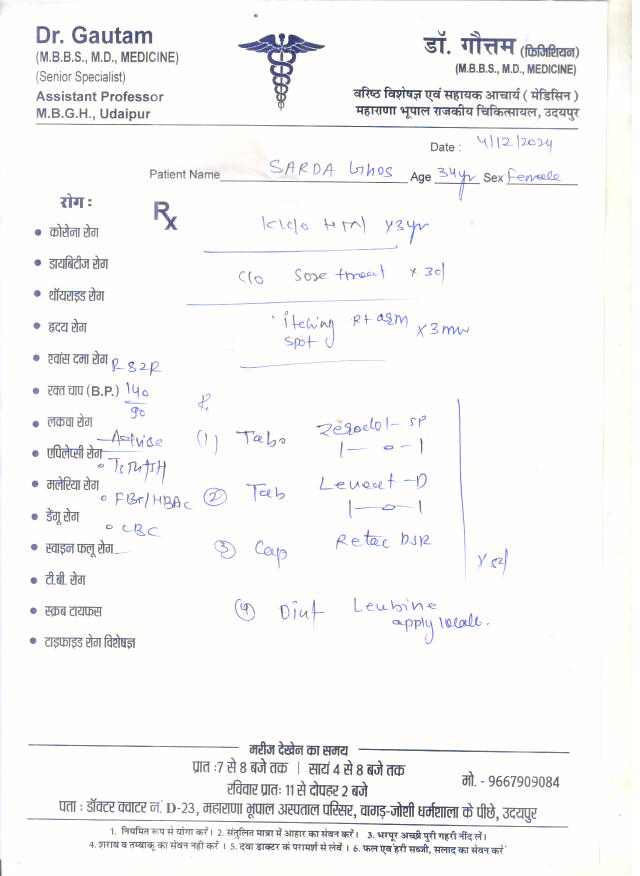 Dr. Gautam
(M.B.B.S., M.D., MEDICINE)
(Senior Specialist)
Assistant Professor
M.B.G.H., Udaipur
डॉ. गौत्तम (फिजिशियन)
(M.B.B.S., M.D., MEDICINE)
वरिष्ठ विशेषज्ञ एवं सहायक आचार्य ( मेडिसिन )
महाराणा भूपाल राजकीय चिकित्सायल, उदयपुर
Date : 4/12/2024
Patient Name SARDA Ghos Age 34yr Sex Female
रोग :
Rx
K/c/o HTN x3yr
• कोरोना रोग
• डायबिटीज रोग
C/o Sore throat x 3d
• थॉयराइड रोग
• हृदय रोग
Itching Rt arm
spot
• श्वांस दमा रोग
• रक्त चाप (B.P.) 140/90
• लकवा रोग
Advise
(1) Tab Zerodol-SP
1—0—1
• एपिलेप्सी रोग
• मलेरिया रोग
• FBS/HBAc
(2) Tab -D
1—0—1
• डेंगू रोग
• CBC
• स्वाइन फलू रोग
(3) Cap DSR
x 5d
• टी.बी. रोग
• स्क्रब टायफस
(4) Oint
apply locall.
• टाइफाइड रोग विशेषज्ञ
मरीज देखेन का समय
प्रात :7 से 8 बजे तक | सायं 4 से 8 बजे तक
रविवार प्रातः 11 से दोपहर 2 बजे
मो. - 9667909084
पता : डॉक्टर क्वाटर नं. D-23, महाराणा भूपाल अस्पताल परिसर, वागड़-जोशी धर्मशाला के पीछे, उदयपुर
1. नियमित रूप से योगा करें। 2. संतुलित मात्रा में आहार का सेवन करें। 3. भरपूर अच्छी पुरी गहरी नींद लें।
4. शराब व तम्बाकू का सेवन नही करें । 5. दवा डाक्टर के परामर्श से लेवें । 6. फल एवं हरी सब्जी, सलाद का सेवन करे